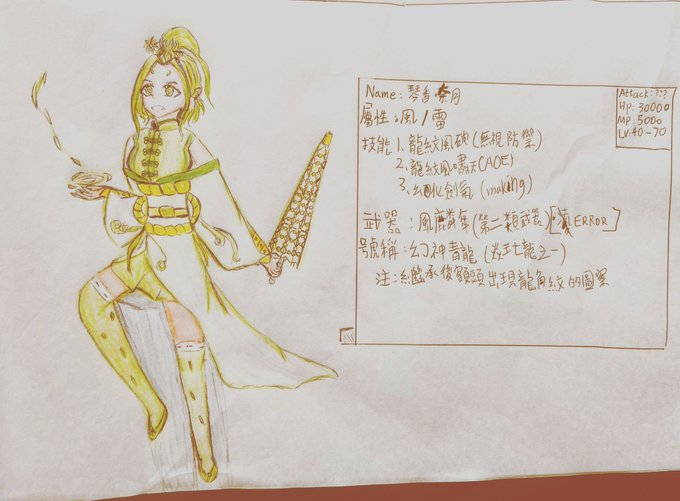 Name：琴音 奈月
屬性：風/雷
技能 1、龍紋風砲(無視防禦)
2、龍紋風嘯天(AOE)
3、幻化劍氣 (making)
武器：風麟葬(第二類武器)[ERROR]
號稱：幻神青龍(七龍之一)
注：繼承後額頭出現龍角紋的圖案
Attack：???
HP：30000
MP：5000
LV：40-70